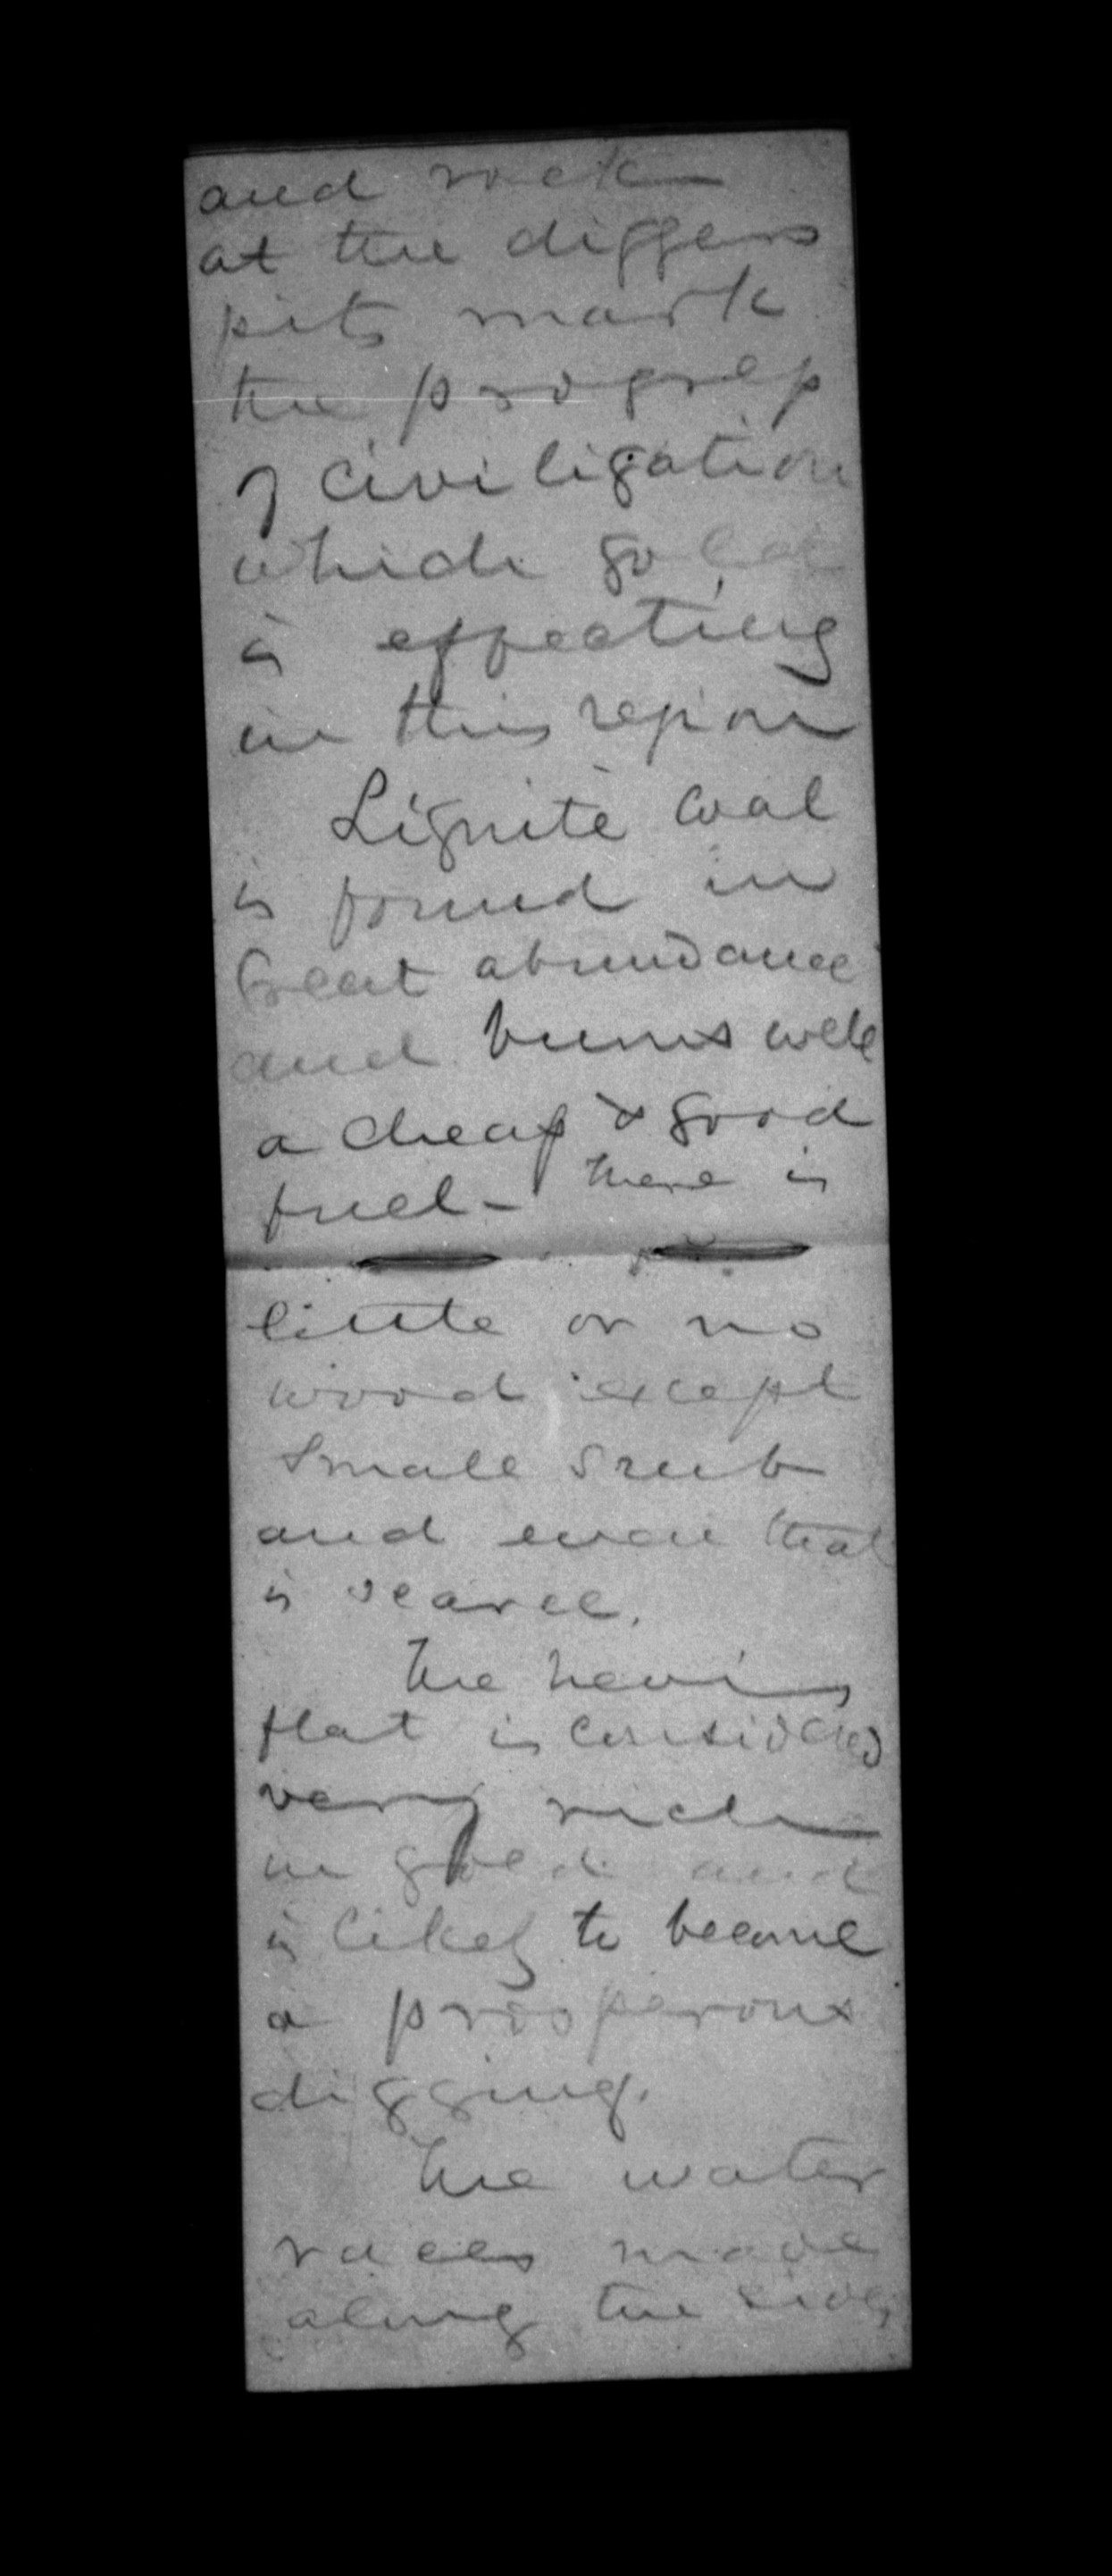 and rock
at the diggers
pits mark
the progress
of civilization
which gold
is effecting
in this region
Lignite coal
is found in
Great abundance
and burns well
a cheap & good
fuel - There is
little or no
wood except
small srub
and even that
is scarce.
The Nevis
flat is considered
very rich
in gold and
is likely to become
a prosperous
digging.
The water
races made
along the sides